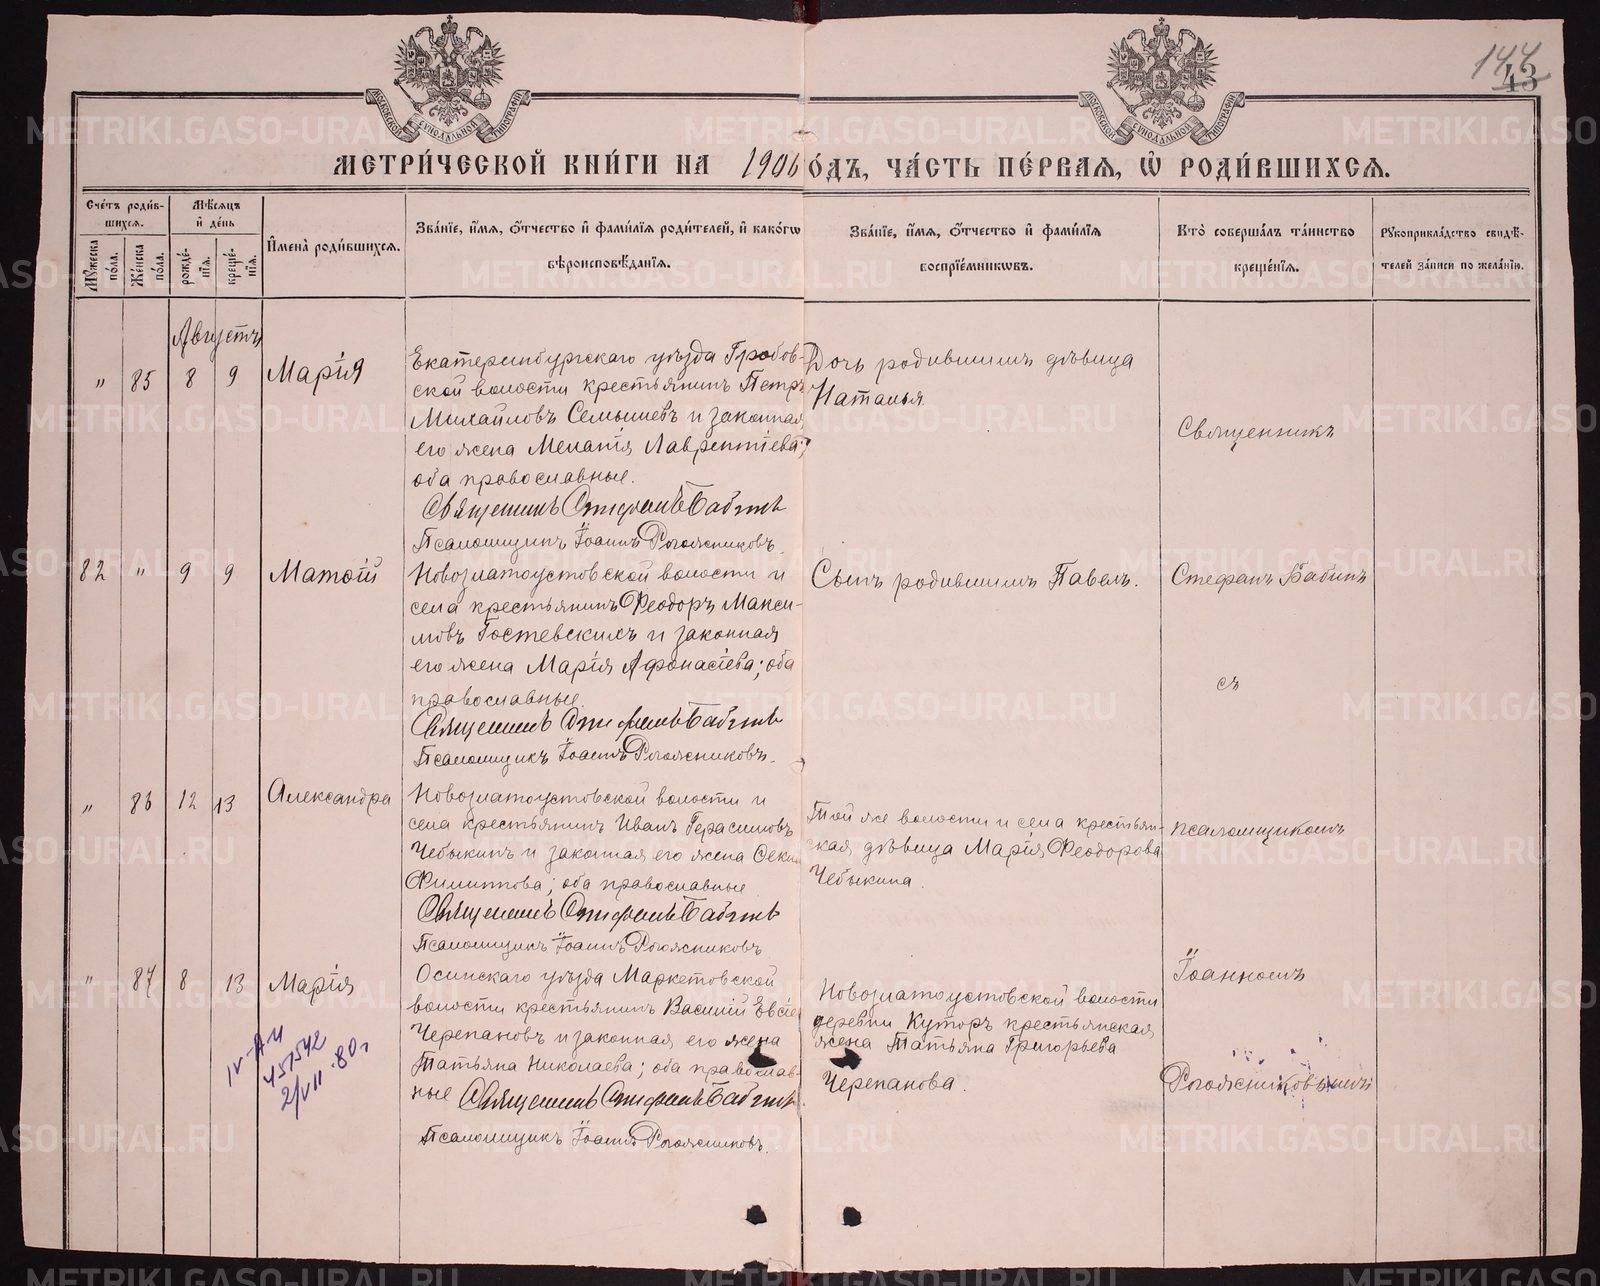 144
43
МОСКОВСКОЙ СѴНОДАЛЬНОЙ ТИПОГРАФІИ
МОСКОВСКОЙ СѴНОДАЛЬНОЙ ТИПОГРАФІИ
МЕТРИ́ЧЕСКОЙ КНИ́ГИ НА 1906 ГО́ДЪ, ЧА́СТЬ ПЕ́РВАЯ, Ѡ РОДИ́ВШИХСЯ.
Сче́тъ роди́в-
шихся.
Мѣ́сяцъ
и́ де́нь
Мꙋжеска по́ла.
Же́нска по́ла.
рожде́-
нїя.
креще́-
нїя.
И҆мена̀ роди́вшихся.
Зва́нїе, и҆́мя, ѻ҆́тчество и҆ фами́лїя роди́телей, и҆ како́гѡ
вѣроисповѣ́данїя.
Зва́нїе, и҆́мя, ѻ҆́тчество и҆ фами́лїя
воспрїе́мникѡвъ.
Кто̀ соверша́лъ та́инство
креще́нїя.
Рꙋкоприкла́дство свидѣ́-
телей за́писи по жела́нїю.
Августъ
" 85 8 9 Марія
Екатеринбургскаго уѣзда Гробов-
ской волости крестьянинъ Петръ
Михайловъ Семышевъ и законная
его жена Мелатія Лаврентіева;
оба православные.
Священникъ Стефанъ Бабинъ
Псаломщикъ Іоаннъ Рогожниковъ.
Дочь родившимъ дѣвица
Наталья
Священникъ
82 " 9 9 Матѳій
Новозлатоустовской волости и
села крестьянинъ Ѳеодоръ Макси-
мовъ Гостевскихъ и законная
его жена Марія Афонасіева; оба
православные
Священникъ Стефанъ Бабинъ
Псаломщикъ Іоаннъ Рогожниковъ.
Сынъ родившимъ Павелъ.
Стефанъ Бабинъ
съ
" 86 12 13 Александра
Новозлатоустовской волости и
села крестьянинъ Иванъ Герасимовъ
Чебыкинъ и законная его жена
Филиппова; оба православные
Священникъ Стефанъ Бабинъ
Псаломщикъ Іоаннъ Рогожниковъ
Той же волости и села крестьян-
ская дѣвица Марія Ѳеодорова
Чебыкина.
псаломщикомъ
" 87 8 13 Марія
Осинскаго уѣзда Маркетовской
волости крестьянинъ Василій
Черепановъ и законная его жена
Татьяна Николаева; оба православ-
ные Священникъ Стефанъ Бабинъ
Псаломщикъ Іоаннъ Рогожниковъ.
Новозлатоустовской волости
деревни Куторъ крестьянская
жена Татьяна Григорьева
Черепанова.
Іоанномъ
Рогожниковымъ
IV-АИ
457542
2/VII.80г